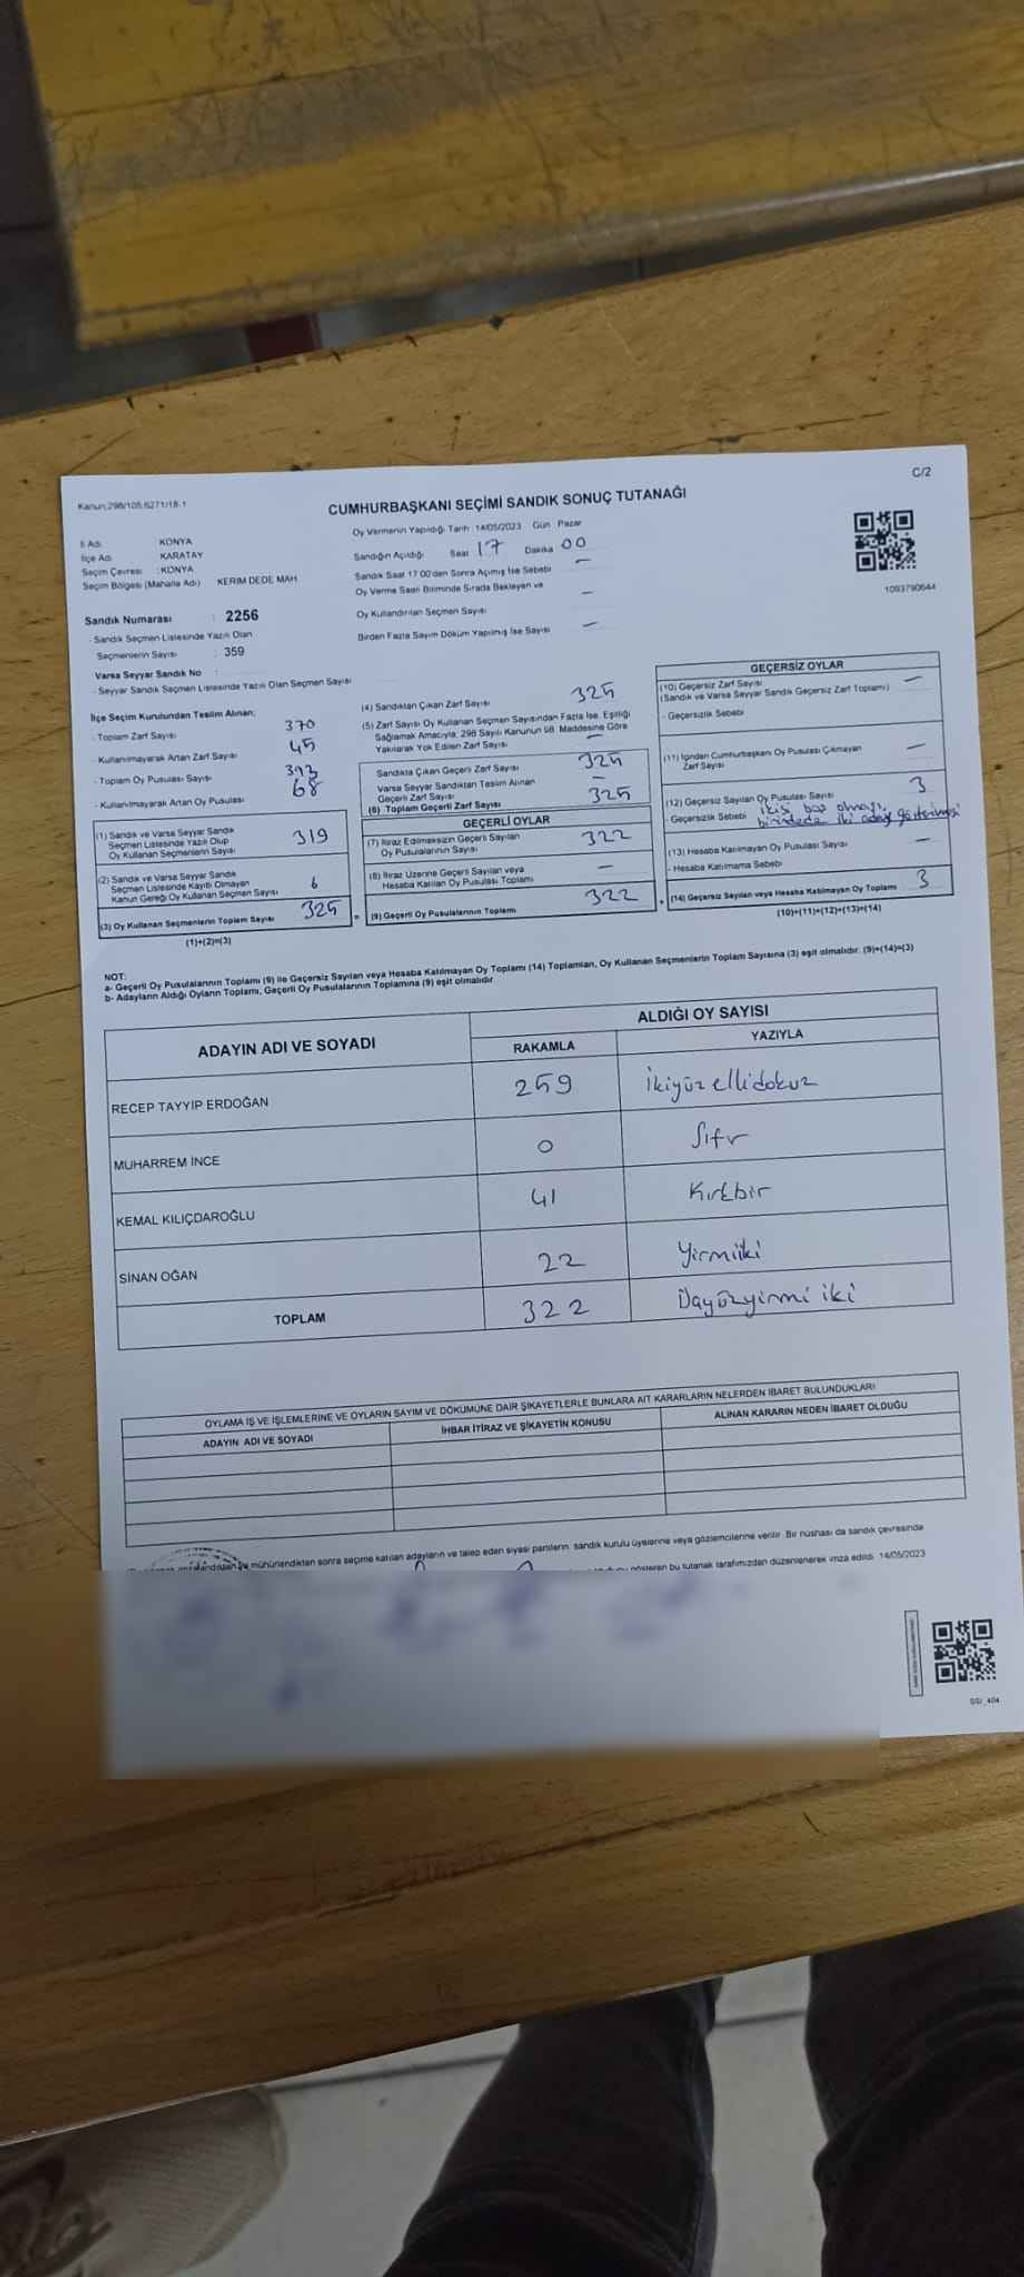 C/2
Kanun:298/105,6271/18-1
CUMHURBAŞKANI SEÇİMİ SANDIK SONUÇ TUTANAĞI
İl Adı : KONYA
İlçe Adı : KARATAY
Seçim Çevresi : KONYA
Seçim Bölgesi (Mahalle Adı) : KERİM DEDE MAH
Oy Vermenin Yapıldığı Tarih : 14/05/2023 Gün : Pazar
Sandığın Açıldığı Saat 17 Dakika 00
Sandık Saat 17:00'den Sonra Açılmış İse Sebebi —
Oy Verme Saati Bitiminde Sırada Bekleyen ve
Oy Kullandırılan Seçmen Sayısı —
Birden Fazla Sayım Döküm Yapılmış İse Sayısı —
1093790644
Sandık Numarası : 2256
- Sandık Seçmen Listesinde Yazılı Olan
Seçmenlerin Sayısı : 359
Varsa Seyyar Sandık No :
- Seyyar Sandık Seçmen Listesinde Yazılı Olan Seçmen Sayısı
İlçe Seçim Kurulundan Teslim Alınan;
- Toplam Zarf Sayısı 370
- Kullanılmayarak Artan Zarf Sayısı 45
- Toplam Oy Pusulası Sayısı 393
- Kullanılmayarak Artan Oy Pusulası 68
(1) Sandık ve Varsa Seyyar Sandık
Seçmen Listesinde Yazılı Olup
Oy Kullanan Seçmenlerin Sayısı 319
(2) Sandık ve Varsa Seyyar Sandık
Seçmen Listesinde Kayıtlı Olmayan
Kanun Gereği Oy Kullanan Seçmen Sayısı 6
(3) Oy Kullanan Seçmenlerin Toplam Sayısı 325
(1)+(2)=(3)
(4) Sandıktan Çıkan Zarf Sayısı 325
(5) Zarf Sayısı Oy Kullanan Seçmen Sayısından Fazla İse, Eşitliği
Sağlamak Amacıyla, 298 Sayılı Kanunun 98. Maddesine Göre
Yakılarak Yok Edilen Zarf Sayısı —
Sandıkta Çıkan Geçerli Zarf Sayısı 325
Varsa Seyyar Sandıktan Teslim Alınan
Geçerli Zarf Sayısı —
(6) Toplam Geçerli Zarf Sayısı 325
GEÇERLİ OYLAR
(7) İtiraz Edilmeksizin Geçerli Sayılan
Oy Pusulalarının Sayısı 322
(8) İtiraz Üzerine Geçerli Sayılan veya
Hesaba Katılan Oy Pusulası Toplamı —
= (9) Geçerli Oy Pusulalarının Toplamı 322
GEÇERSİZ OYLAR
(10) Geçersiz Zarf Sayısı —
(Sandık ve Varsa Seyyar Sandık Geçersiz Zarf Toplamı)
- Geçersizlik Sebebi
(11) İçinden Cumhurbaşkanı Oy Pusulası Çıkmayan
Zarf Sayısı —
(12) Geçersiz Sayılan Oy Pusulası Sayısı 3
- Geçersizlik Sebebi ikisi boş olması,
birindede iki adayı
(13) Hesaba Katılmayan Oy Pusulası Sayısı —
- Hesaba Katılmama Sebebi
+ (14) Geçersiz Sayılan veya Hesaba Katılmayan Oy Toplamı 3
(10)+(11)+(12)+(13)=(14)
NOT:
a- Geçerli Oy Pusulalarının Toplamı (9) ile Geçersiz Sayılan veya Hesaba Katılmayan Oy Toplamı (14) Toplamları, Oy Kullanan Seçmenlerin Toplam Sayısına (3) eşit olmalıdır. (9)+(14)=(3)
b- Adayların Aldığı Oyların Toplamı, Geçerli Oy Pusulalarının Toplamına (9) eşit olmalıdır
ADAYIN ADI VE SOYADI ALDIĞI OY SAYISI
RAKAMLA YAZIYLA
RECEP TAYYIP ERDOĞAN 259 İkiyüz ellidokuz
MUHARREM İNCE 0 Sıfır
KEMAL KILIÇDAROĞLU 41 Kırkbir
SİNAN OĞAN 22 Yirmiiki
TOPLAM 322 Üçyüzyirmi iki
OYLAMA İŞ VE İŞLEMLERİNE VE OYLARIN SAYIM VE DÖKÜMÜNE DAİR ŞİKAYETLERLE BUNLARA AİT KARARLARIN NELERDEN İBARET BULUNDUKLARI
ADAYIN ADI VE SOYADI İHBAR İTİRAZ VE ŞİKAYETİN KONUSU ALINAN KARARIN NEDEN İBARET OLDUĞU
mühürlendikten sonra seçime katılan adayların ve talep eden siyasi partilerin, sandık kurulu üyelerine veya gözlemcilerine verilir. Bir nüshası da sandık çevresinde
gösteren bu tutanak tarafımızdan düzenlenerek imza edildi. 14/05/2023